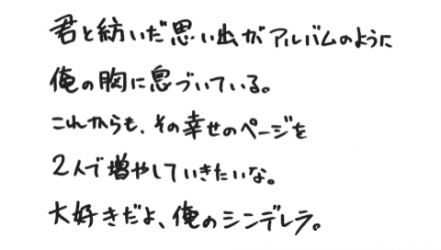 君と紡いだ思い出がアルバムのように
俺の胸に息づいている。
これからも、その幸せのページを
2人で増やしていきたいな。
大好きだよ、俺のシンデレラ。